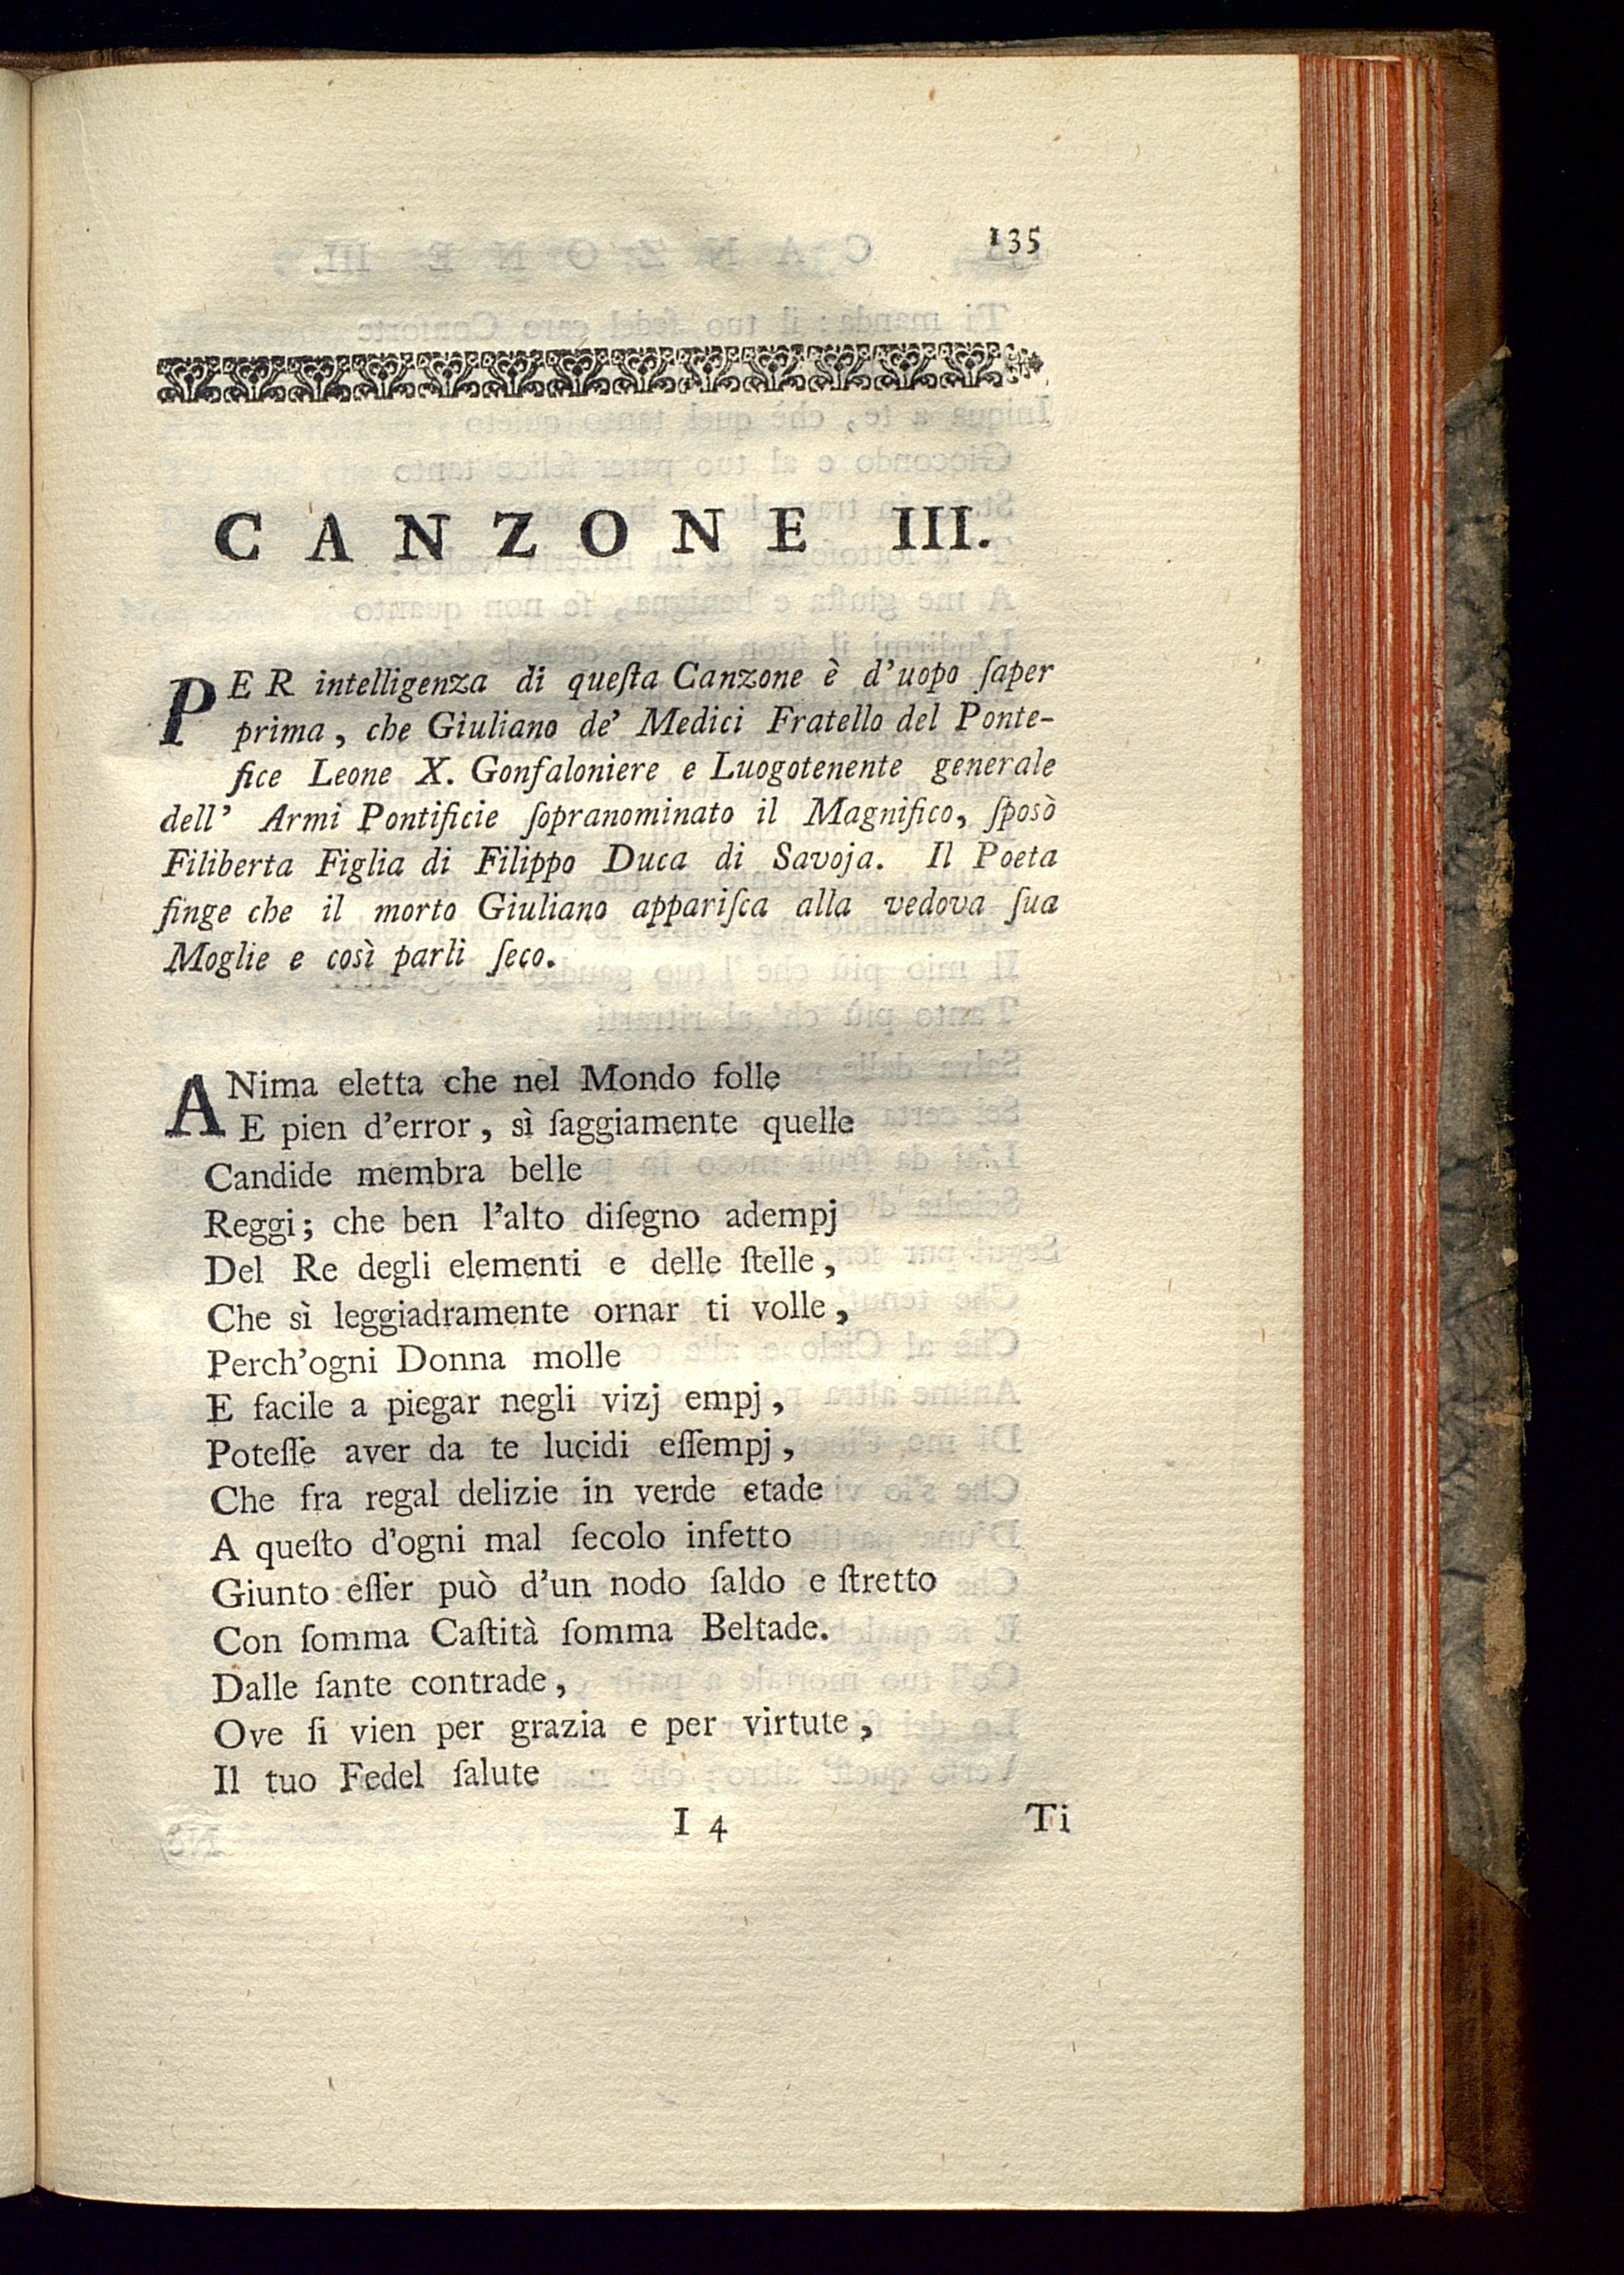 135
CANZONE III.
PER intelligenza di queſta Canzone è d'uopo ſaper
prima, che Giuliano de' Medici Fratello del Ponte-
fice Leone X. Gonfaloniere e Luogotenente generale
dell' Armi Pontificie ſopranominato il Magnifico, ſposò
Filiberta Figlia di Filippo Duca di Savoja. Il Poeta
finge che il morto Giuliano appariſca alla vedova ſua
Moglie e così parli ſeco.
ANima eletta che nel Mondo folle
E pien d'error, sì ſaggiamente quelle
Candide membra belle
Reggi; che ben l'alto diſegno adempj
Del Re degli elementi e delle ſtelle,
Che sì leggiadramente ornar ti volle,
Perch'ogni Donna molle
E facile a piegar negli vizj empj,
Poteſſe aver da te lucidi eſſempj,
Che fra regal delizie in verde etade
A queſto d'ogni mal ſecolo infetto
Giunto eſſer può d'un nodo ſaldo e ſtretto
Con ſomma Caſtità ſomma Beltade.
Dalle ſante contrade,
Ove ſi vien per grazia e per virtute,
Il tuo Fedel ſalute
I 4 Ti